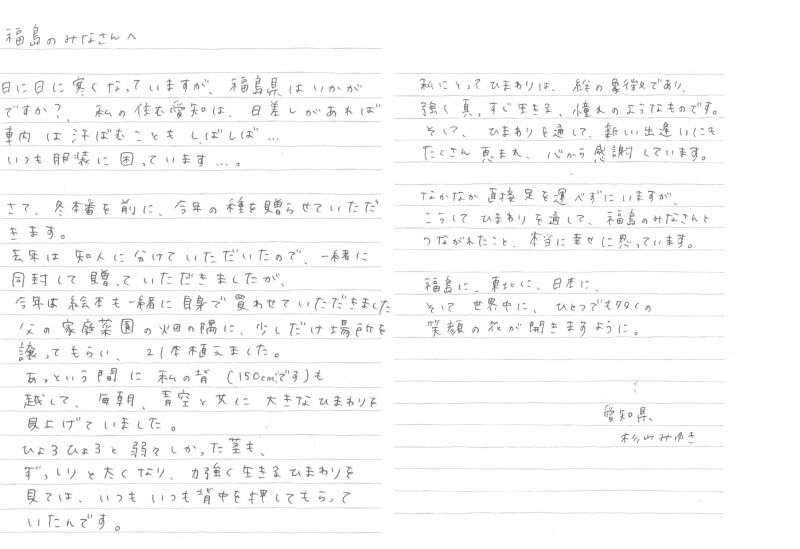 福島のみなさんへ
日に日に寒くなっていますが、福島県はいかが
ですか?、私の住む愛知は、日差しがあれば
車内は汗ばむこともしばしば…
いつも服装に困っています…。
さて、冬本番を前に、今年の種を贈らせていただ
きます。
去年は知人に分けていただいたので、一緒に
同封して贈っていただきましたが、
今年は絵本も一緒に自身で買わせていただきました
父の家庭菜園の畑の隅に、少しだけ場所を
譲ってもらい、21本植えました。
あっという間に私の背(150cmです)も
越して、毎朝、青空と共に大きなひまわりを
見上げていました。
ひょろひょろと弱々しかった茎も、
ずっしりと太くなり、力強く生きるひまわりを
見ては、いつもいつも背中を押してもらって
いたんです。
私にとってひまわりは、絆の象徴であり、
強く真っすぐ生きる、憧れのようなものです。
そして、ひまわりを通して、新しい出逢いにも
たくさん恵まれ、心から感謝しています。
なかなか直接足を運べずにいますが、
こうしてひまわりを通して、福島のみなさんと
つながれたこと、本当に幸せに思っています。
福島に、東北に、日本に、
そして世界中に、ひとつでも多くの
笑顔の花が開きますように。
愛知県、
杉山みゆき